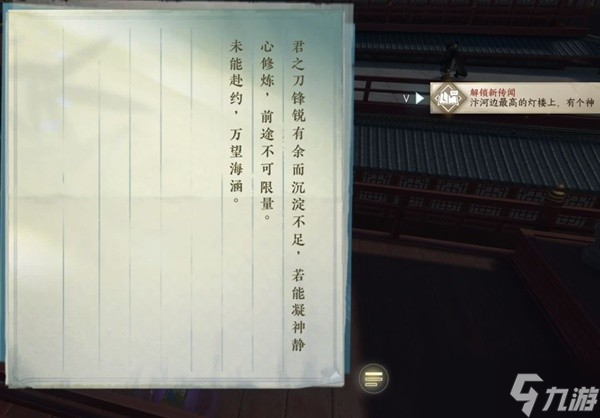 君之刀锋锐有余而沉淀不足，若能凝神静
心修炼，前途不可限量。
未能赴约，万望海涵。
V
解锁新传闻
汴河边最高的灯楼上，有个神
九游